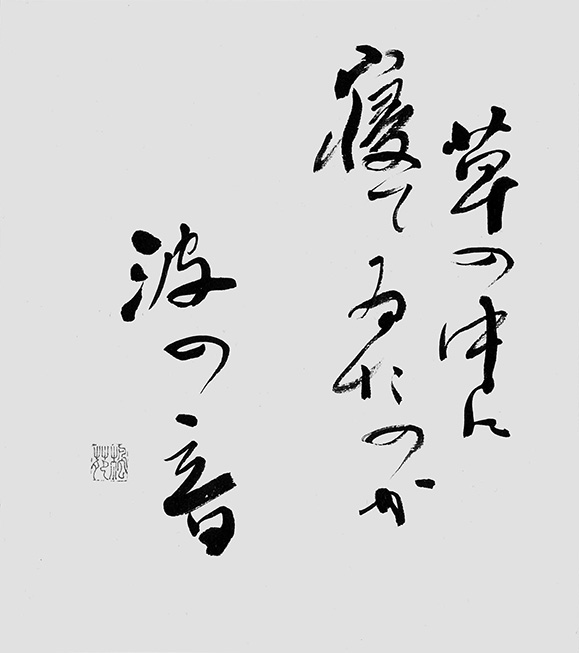 草の中に
寝てゐたのか
波の音